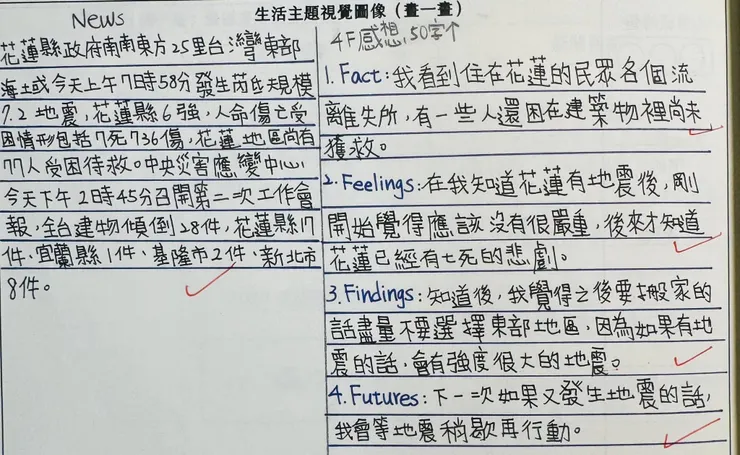 生活主題視覺圖像（畫一畫）
News
花蓮縣政府南南東方25里台灣東部
海域今天上午7時58分發生芮氏規模
7.2地震，花蓮縣6強，人命傷亡受
困情形包括7死736傷，花蓮地區尚有
77人受困待救。中央災害應變中心
今天下午2時45分召開第二次工作會
報，全台建物傾倒28件，花蓮縣17
件、宜蘭縣1件、基隆市2件、新北市
8件。
4F感想，50字↑
1.Fact：我看到住在花蓮的民眾各個流
離失所，有一些人還困在建築物裡尚未
獲救。
2.Feelings：在我知道花蓮有地震後，剛
開始覺得應該沒有很嚴重，後來才知道
花蓮已經有七死的悲劇。
3.Findings：知道後，我覺得之後要搬家的
話盡量不要選擇東部地區，因為如果有地
震的話，會有強度很大的地震。
4.Futures：下一次如果又發生地震的話，
我會等地震稍歇再行動。